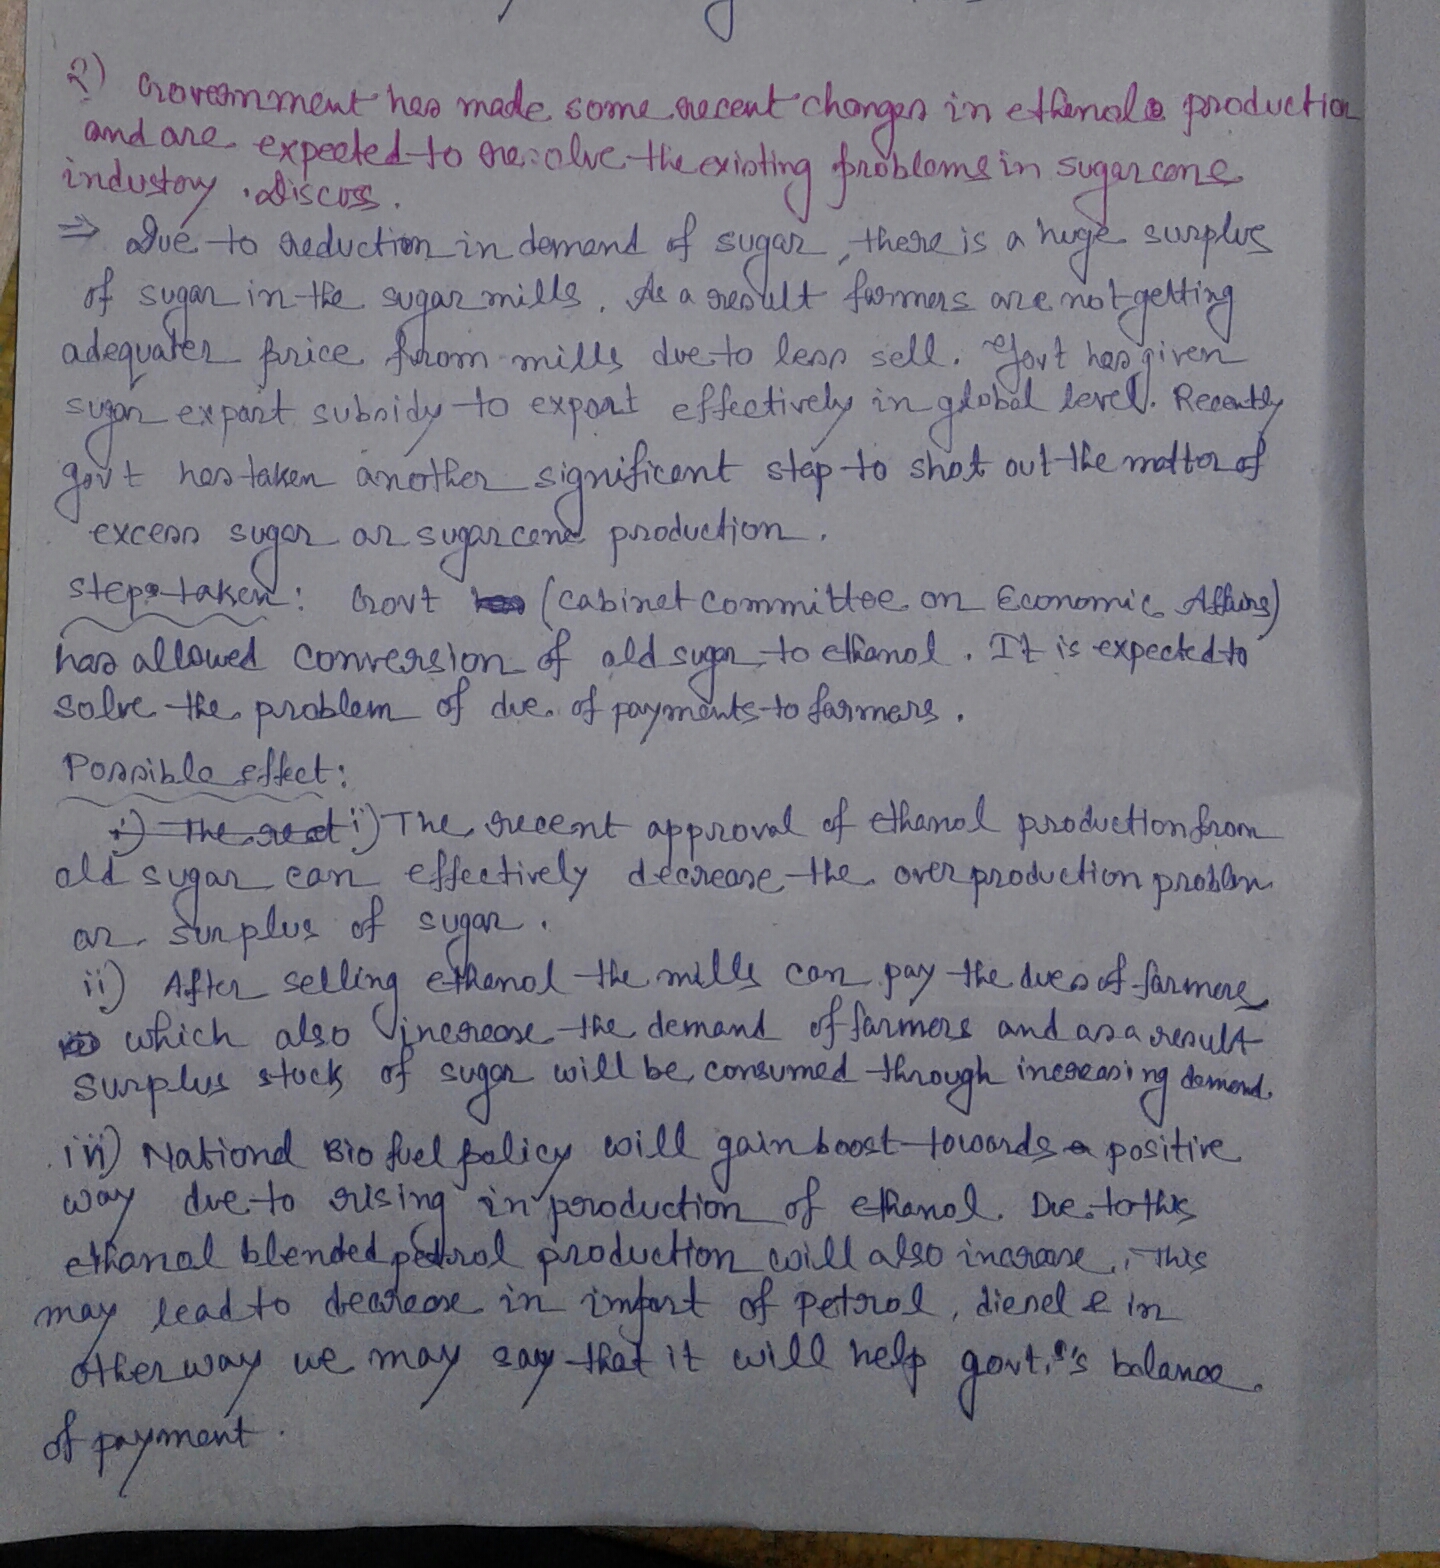 2) Government has made some recent changes in ethanol production
and are expected to resolve the existing problems in sugarcane
industry. Discuss.
⇒ Due to reduction in demand of sugar, there is a huge surplus
of sugar in the sugar mills. As a result farmers are not getting
adequate price from mills due to less sell. Govt has given
sugar export subsidy to export effectively in global level. Recently
govt has taken another significant step to shot out the matter of
excess sugar or sugarcane production.
steps taken: Govt (cabinet committee on Economic Affairs)
has allowed conversion of old sugar to ethanol. It is expected to
solve the problem of due of payments to farmers.
Possible effect:
i) The recent approval of ethanol production from
old sugar can effectively decrease the over production problem
or surplus of sugar.
ii) After selling ethanol the mills can pay the dues of farmers
which also increase the demand of farmers and as a result
surplus stock of sugar will be consumed through increasing demand.
iii) National Bio fuel policy will gain boost towards a positive
way due to rising in production of ethanol. Due to this
ethanol blended petrol production will also increase. This
may lead to decrease in import of petrol, diesel & in
other way we may say that it will help govt.'s balance
of payment.